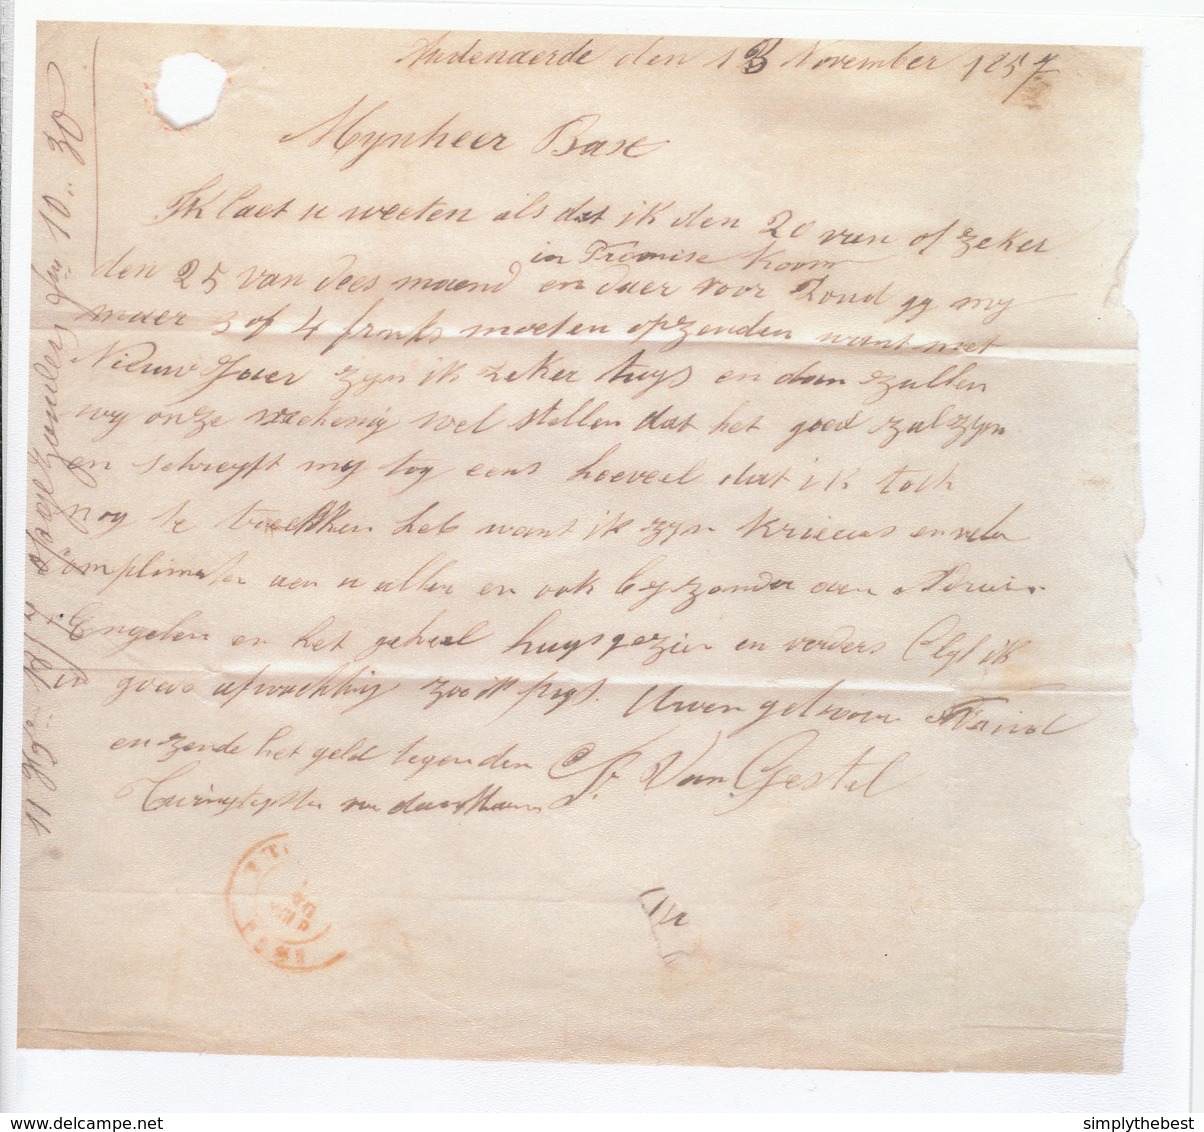 Audenaerde den 13 November 1857
Mynheer Bax
Ik laet u weeten als dat ik den 20 van of zeker
in Promise koom
den 25 van dees maend en daer voor zoud gy my
maer 3 of 4 franks moeten opzenden want met
Nieuw Jaer zyn ik zeker tuys en dan zullen
wy onze reekenig wel stellen dat het goed zal zyn
en schreyft my tog eens hoeveel dat ik toch
nog te trekken heb want ik zyn en
Complimenten aen u allen en ook byzonder aen
Engelen en het geheel huysgezin en verders blyf ik
in goede afwachting zoo ik hoop. Uwen gehoor
en zende het geld tegen den
J. Van Gestel
11 9bre 1857 opgezonden frs 10 .. 30
simplythebest